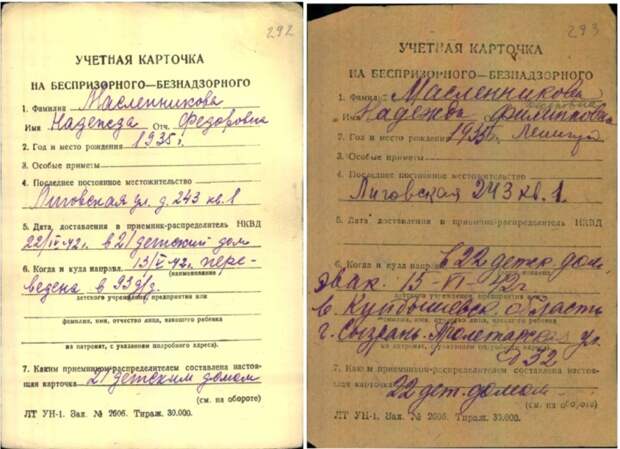 292
УЧЕТНАЯ КАРТОЧКА
НА БЕСПРИЗОРНОГО—БЕЗНАДЗОРНОГО
1. Фамилия Масленникова
Имя Надежда Отч. Федоровна
2. Год и место рождения 1935 г.
3. Особые приметы
4. Последнее постоянное местожительство
Лиговская ул. д. 243 кв. 1
5. Дата доставления в приемник-распределитель НКВД
22/IV-42 г. в 21 детский дом
6. Когда и куда направл. 13/V-42 г. пере-
(наименование
ведена в 93 д/д.
детского учреждения предприятия или
фамилия, имя, отчество лица, взявшего ребенка
на патронат, с указанием подробного адреса).
7. Каким приемником-распределителем составлена настоя-
щая карточка 21 детским домом
(см. на обороте)
ЛТ УН-1. Зак. № 2606. Тираж. 30.000.
293
УЧЕТНАЯ КАРТОЧКА
НА БЕСПРИЗОРНОГО—БЕЗНАДЗОРНОГО
1. Фамилия Масленникова
Имя Надежда Филипповна
2. Год и место рождения 1935 Ленингр
3. Особые приметы
4. Последнее постоянное местожительство
Лиговская 243 кв. 1.
5. Дата доставления в приемник-распределитель НКВД
6. Когда и куда направл. в 22 детск. дом
эвак. 15-VI-42 г
детского учреждения предприятия или
в Куйбышевск. области
фамилия, имя, отчество лица, взявшего ребенка
г. Сызрань. ул.
на патронат, с указанием подробного адреса).
д 32
7. Каким приемником-распределителем составлена настоя-
щая карточка 22 дет. домом
(см. на обороте)
ЛТ УН-1. Зак. № 2606. Тираж. 30.000.